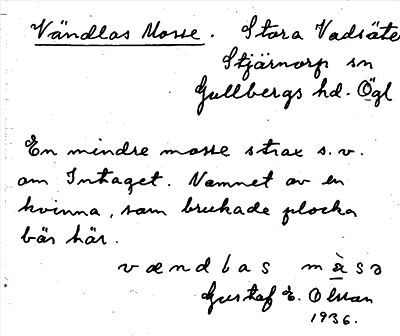 Vändlas Mosse. Stora Vadsäte
Stjärnorp sn
Gullbergs hd. Ögl
En mindre mosse strax s.v.
om Intaget. Namnet av en
kvinna, som brukade plocka
bär här.
vændlas måsə
Gustaf E. Olsson
1936.